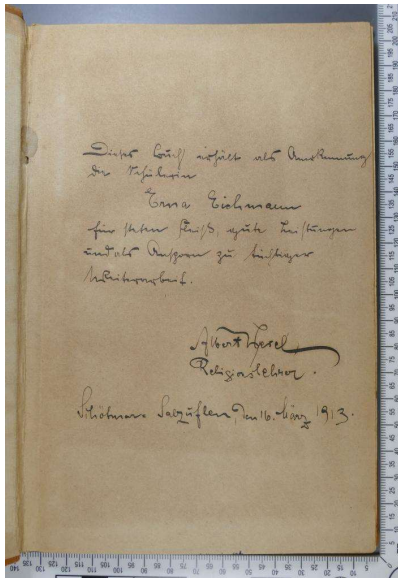 Dieses Buch erhält als Anerkennung
die Schülerin
Erna Eichmann
für steten Fleiß, gute Leistungen
und als Ansporn zu tüchtiger
Weiterarbeit.
Albert
Religionslehrer.
Schötmar Salzuflen, den 16. März 1913.